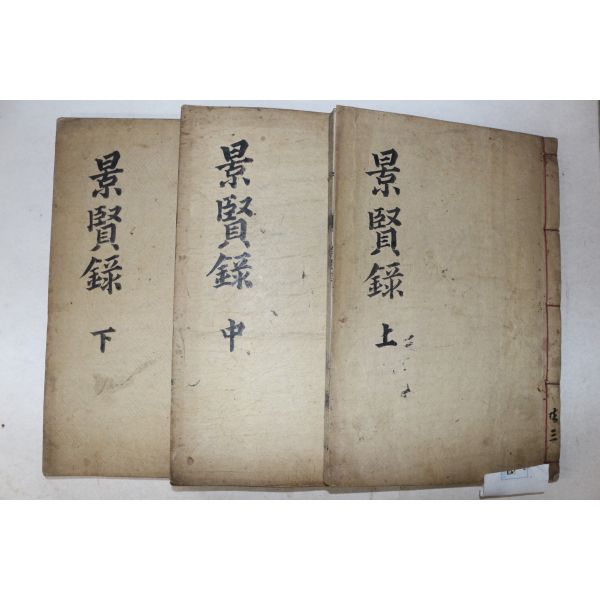 景賢錄 上
景賢錄 中
景賢錄 下
共三